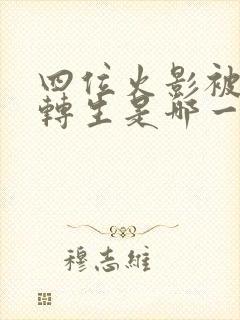 四位火影被
轉生是哪一
穆志維